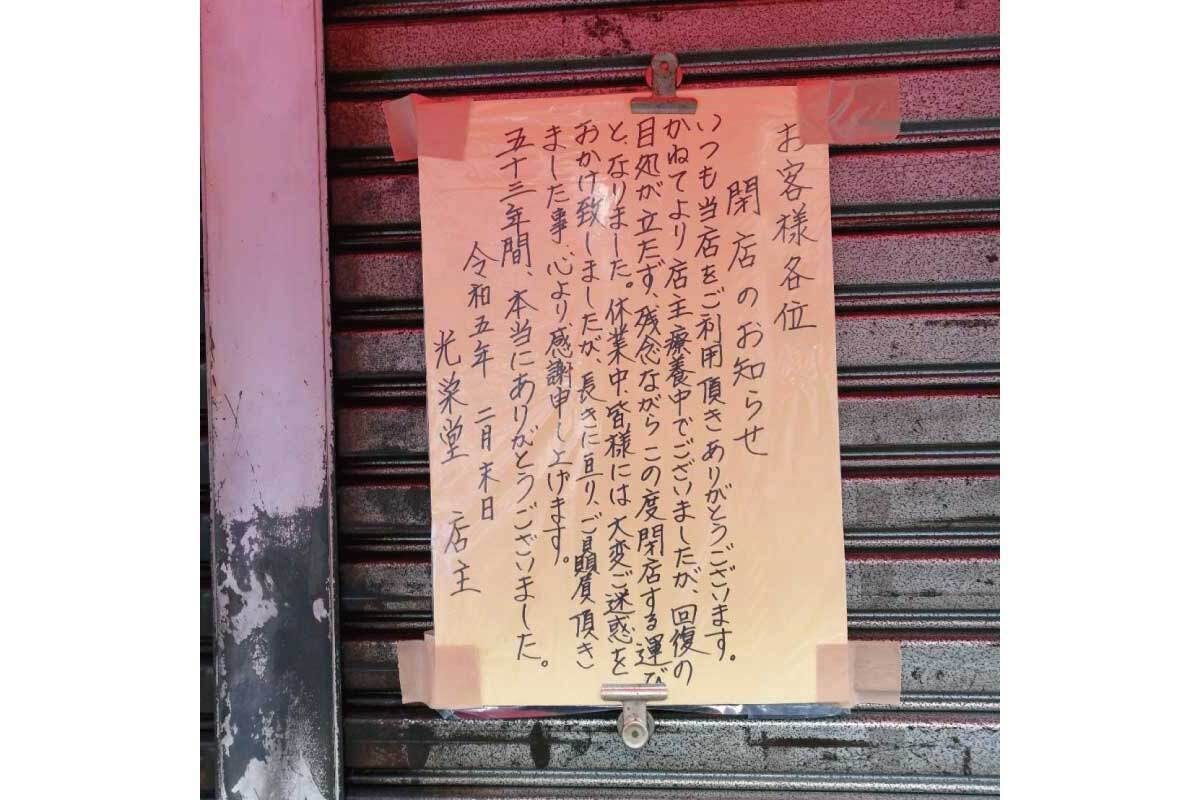 お客様各位
閉店のお知らせ
いつも当店をご利用頂きありがとうございます。
かねてより店主療養中でございましたが、回復の
目処が立たず、残念ながらこの度閉店する運び
と、なりました。休業中、皆様には大変ご迷惑を
おかけ致しましたが、長きに亘り、ご贔屓頂き
ました事、心より感謝申し上げます。
五十三年間、本当にありがとうございました。
令和五年 二月末日
光栄堂 店主